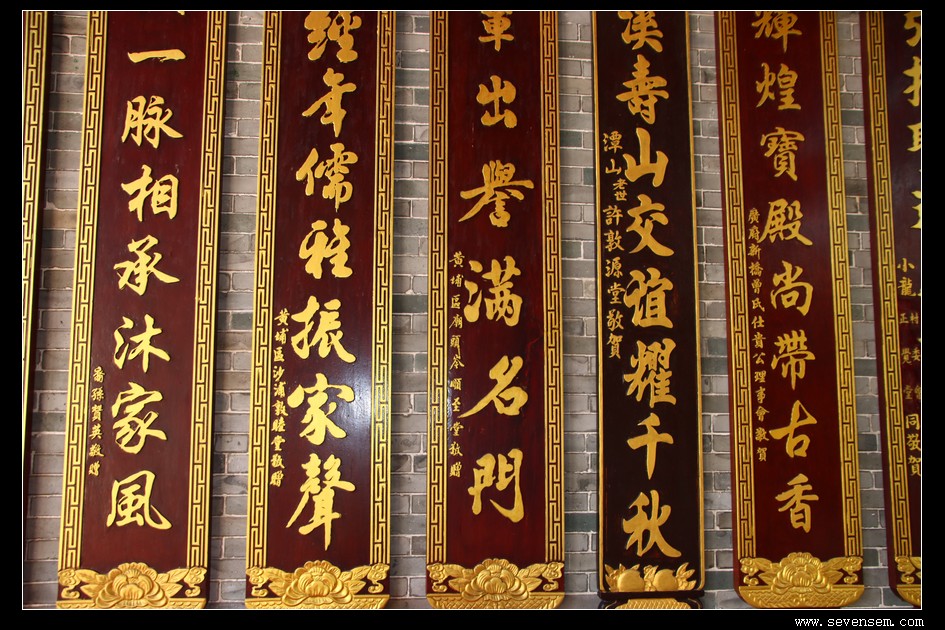 同敬賀
輝煌寶殿尚帶古香
廣府新橋曾氏仕貴公理事會敬賀
溪壽山交誼耀千秋
潭山老世許敦源堂敬賀
出譽滿名門
黃埔區廟頭岑順至堂敬贈
經年儒雅振家聲
黃埔區沙浦敦睦堂敬贈
一脈相承沐家風
裔孫賢英敬贈
www.sevensem.com